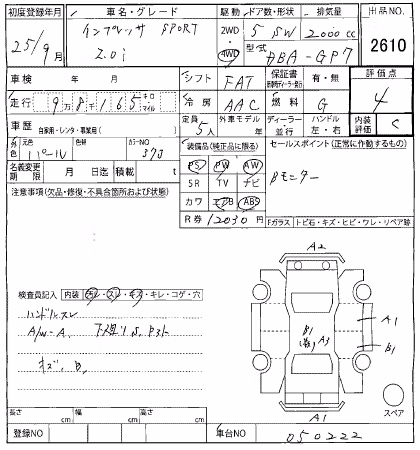 初度登録年月 車名・グレード 駆動 ドア数・形状 排気量 出品NO.
25/9月 インプレッサ SPORT 2WD・4WD 5 SW 2000cc 2610
2.0i 型式 DBA-GP7
車検 年 月 シフト FAT 保証書 有・無 評価点
走行 9万8千165 キロ マイル 冷房 AAC 燃料 G 4
車歴 自家用・レンタ・事業用( ) 定員 5人 外車モデル 年 ディーラー 並行 ハンドル 左・右 内装 C
外色 元色 パール カラーNO 37J 装備品(純正品に限る) セールスポイント(正常に作動するもの)
名義変更期限 月 日迄 積載 t PS PW AW
注意事項(欠品・修復・不具合箇所および状態) SR TV ナビ
カワ エアB ABS
R券 12030円 Fガラス トビ石・キズ・ヒビ・ワレ・リペア跡
A2
検査員記入 内装 汚レ・スレ・キズ・キレ・コゲ・穴
ハンドルスレ
A/W-A.
キズ、B,
B1 A3 A1
B1
A1
スペア
長さ cm 幅 cm 高さ cm
登録NO 車台NO 050222